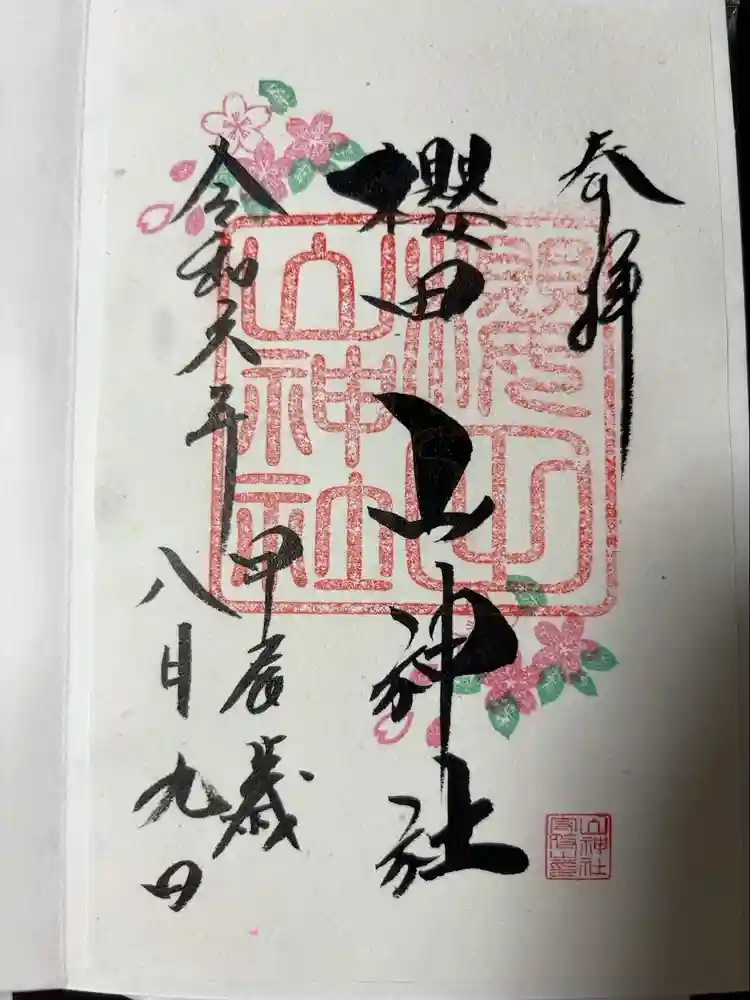 奉拝
櫻田山神社
令和六年
甲辰歳
八月九日
山神社
山神社